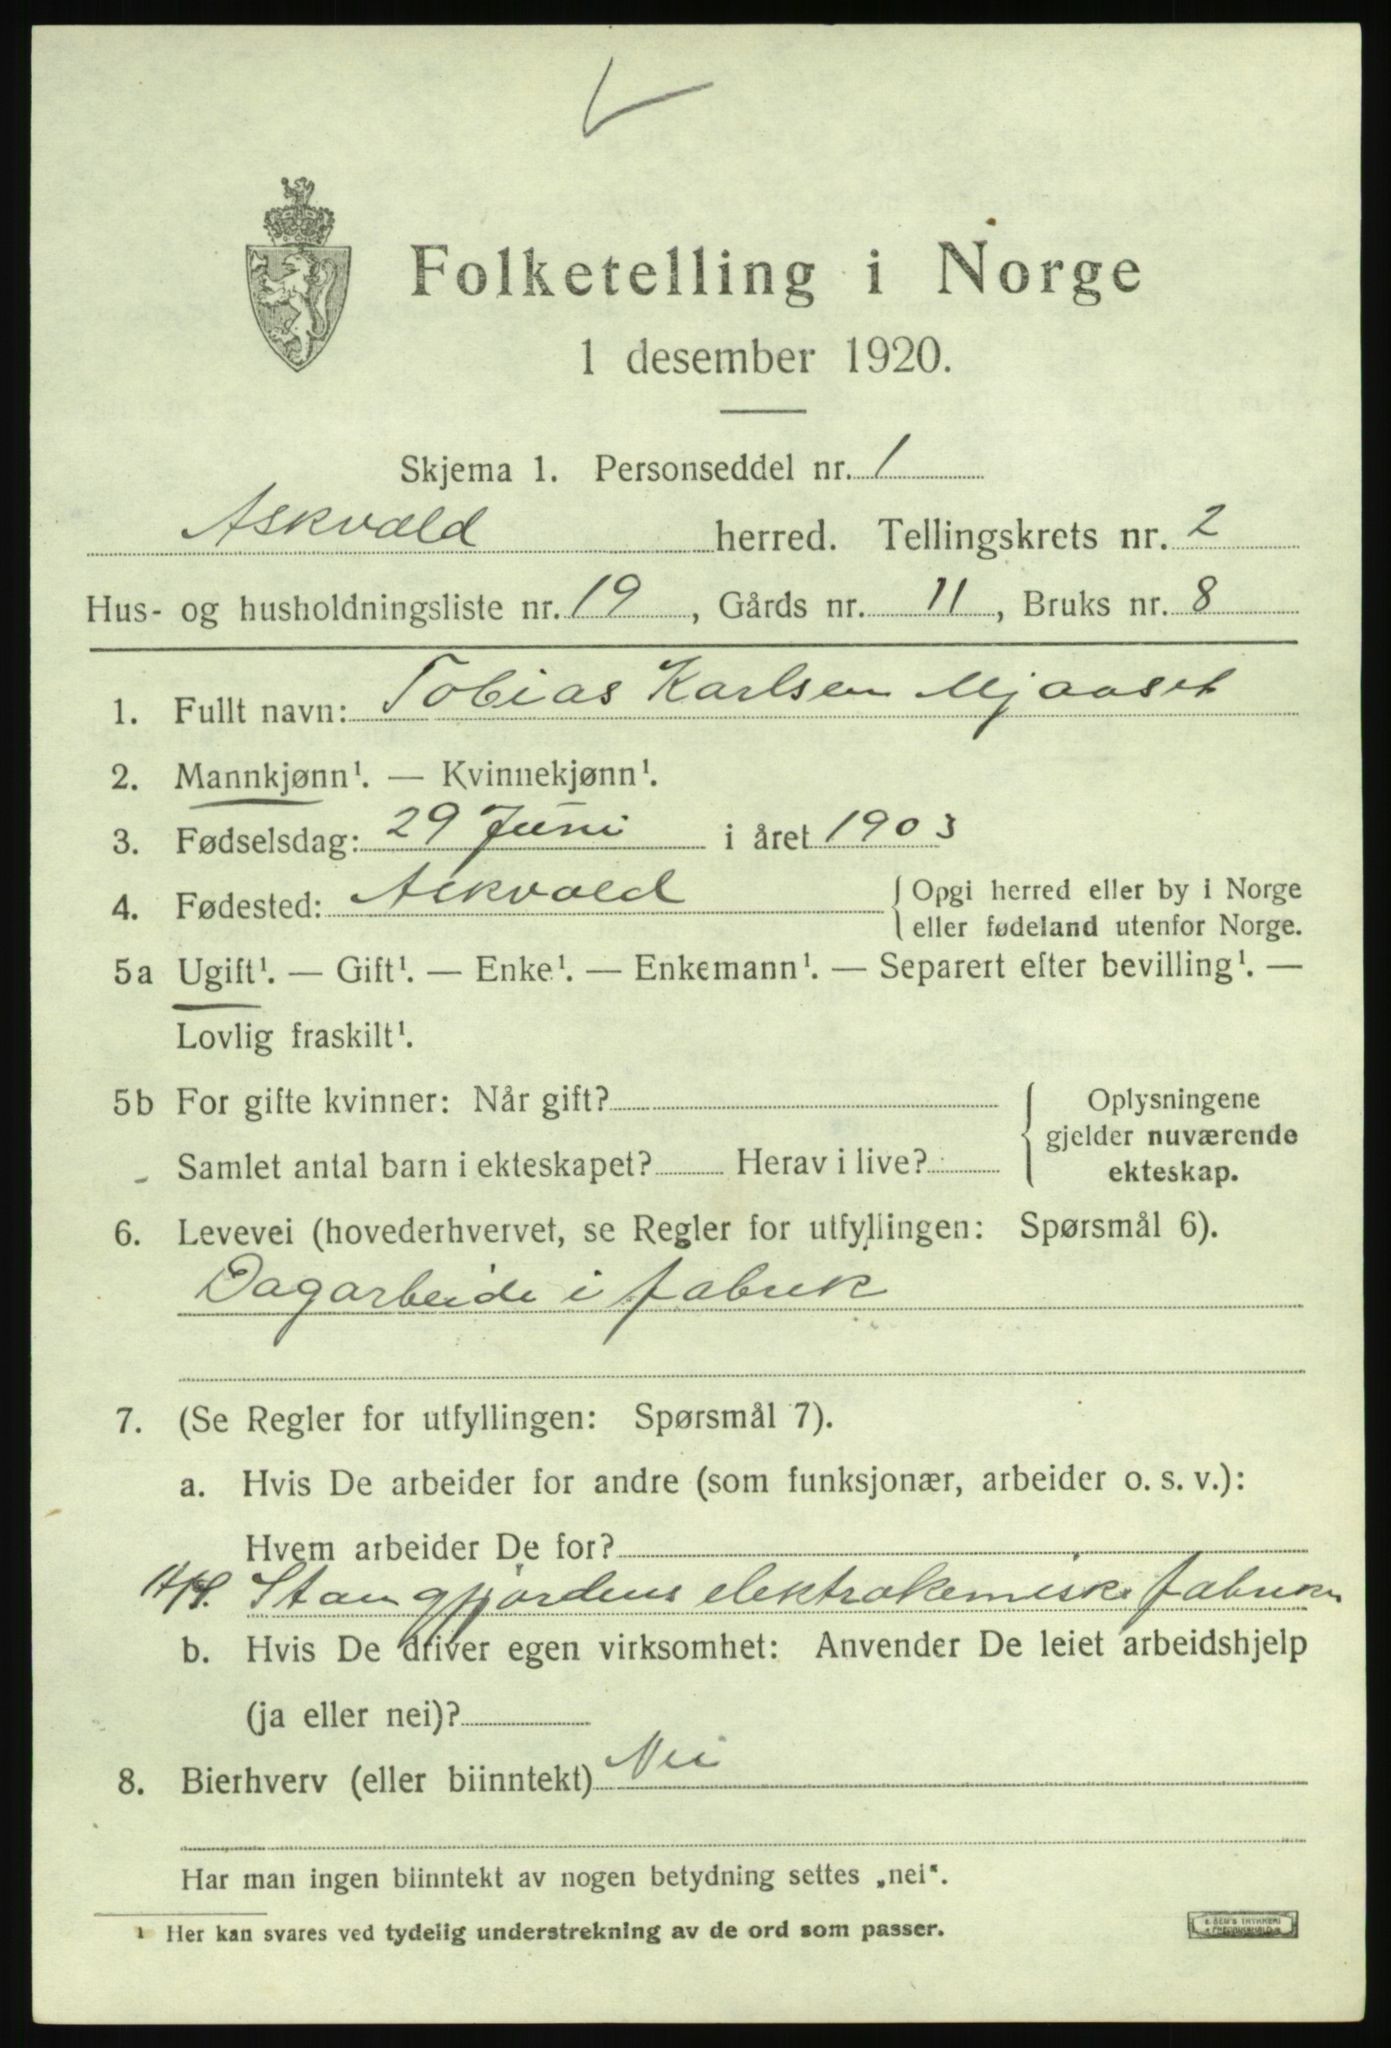 Folketelling i Norge
1 desember 1920.
Skjema 1. Personseddel nr. 1
Askvold herred. Tellingskrets nr. 2
Hus- og husholdningsliste nr. 19, Gårds nr. 11, Bruks nr. 8
1. Fullt navn: Tobias Karlsen Mjaaset
2. Mannkjønn¹. — Kvinnekjønn¹.
3. Fødselsdag: 29 Juni i året 1903
4. Fødested: Askvold { Opgi herred eller by i Norge
eller fødeland utenfor Norge.
5a Ugift¹. — Gift¹. — Enke¹. — Enkemann¹. — Separert efter bevilling¹. —
Lovlig fraskilt¹.
5b For gifte kvinner: Når gift? { Oplysningene
gjelder nuværende
Samlet antal barn i ekteskapet? Herav i live?
ekteskap.
6. Levevei (hovederhvervet, se Regler for utfyllingen: Spørsmål 6).
Dagarbeide i fabrik
7. (Se Regler for utfyllingen: Spørsmål 7).
a. Hvis De arbeider for andre (som funksjonær, arbeider o. s. v.):
Hvem arbeider De for?
Stangfjordens elektrokemiske fabriker
b. Hvis De driver egen virksomhet: Anvender De leiet arbeidshjelp
(ja eller nei)?
8. Bierhverv (eller biinntekt) Nei
Har man ingen biinntekt av nogen betydning settes „nei“.
¹ Her kan svares ved tydelig understrekning av de ord som passer.